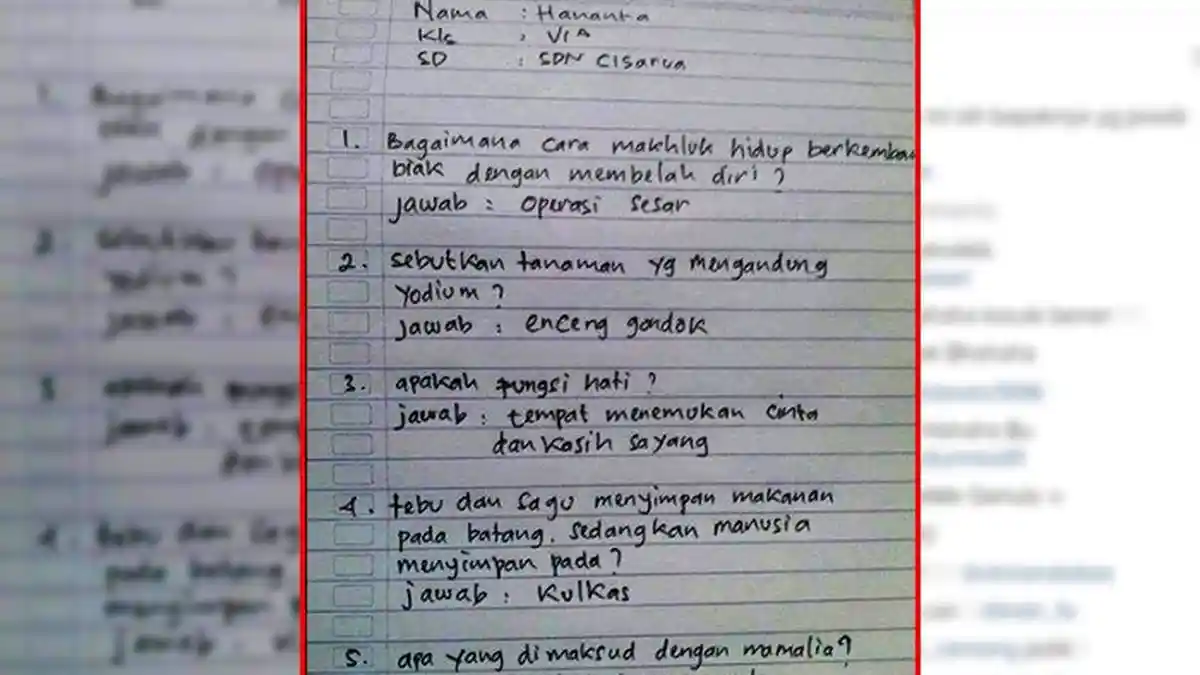 Nama : Hananta
Kls : VIA
SD : SDN Cisarua
1. Bagaimana cara makhluk hidup berkemban
biak dengan membelah diri ?
jawab : operasi sesar
2. sebutkan tanaman yg mengandung
yodium ?
jawab : enceng gondok
3. apakah fungsi hati ?
jawab : tempat menemukan cinta
dan kasih sayang
4. tebu dan sagu menyimpan makanan
pada batang, sedangkan manusia
menyimpan pada ?
jawab : kulkas
5. apa yang dimaksud dengan mamalia ?